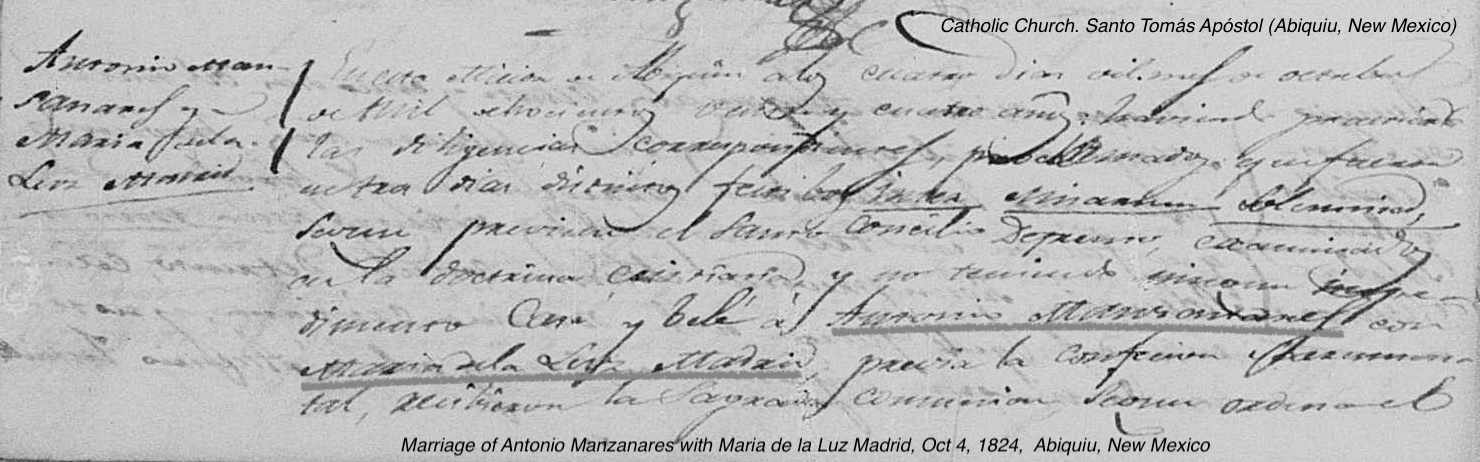 Catholic Church. Santo Tomás Apóstol (Abiquiu, New Mexico)
Antonio Man-
sanares y
Maria de la
Luz Madrid
En esta Micion de Abiquiu a los cuatro dias del mes de octubre
de Mil ochocientos veinte y cuatro años haviendo practicado
las diligencias correspondientes, y que fueron
en tres dias distintos festibos intra Misarum Solemnia,
Segun previene el Santo Concilio examinados
en la doctrina cristiana y no teniendo ningun impe-
dimento Casé y belé á Antonio Mansanares con
Maria de la Luz Madrid, previa la Confecion Sacramen-
tal, recibieron la Sagrada Comunion Segun ordena el
Marriage of Antonio Manzanares with Maria de la Luz Madrid, Oct 4, 1824, Abiquiu, New Mexico